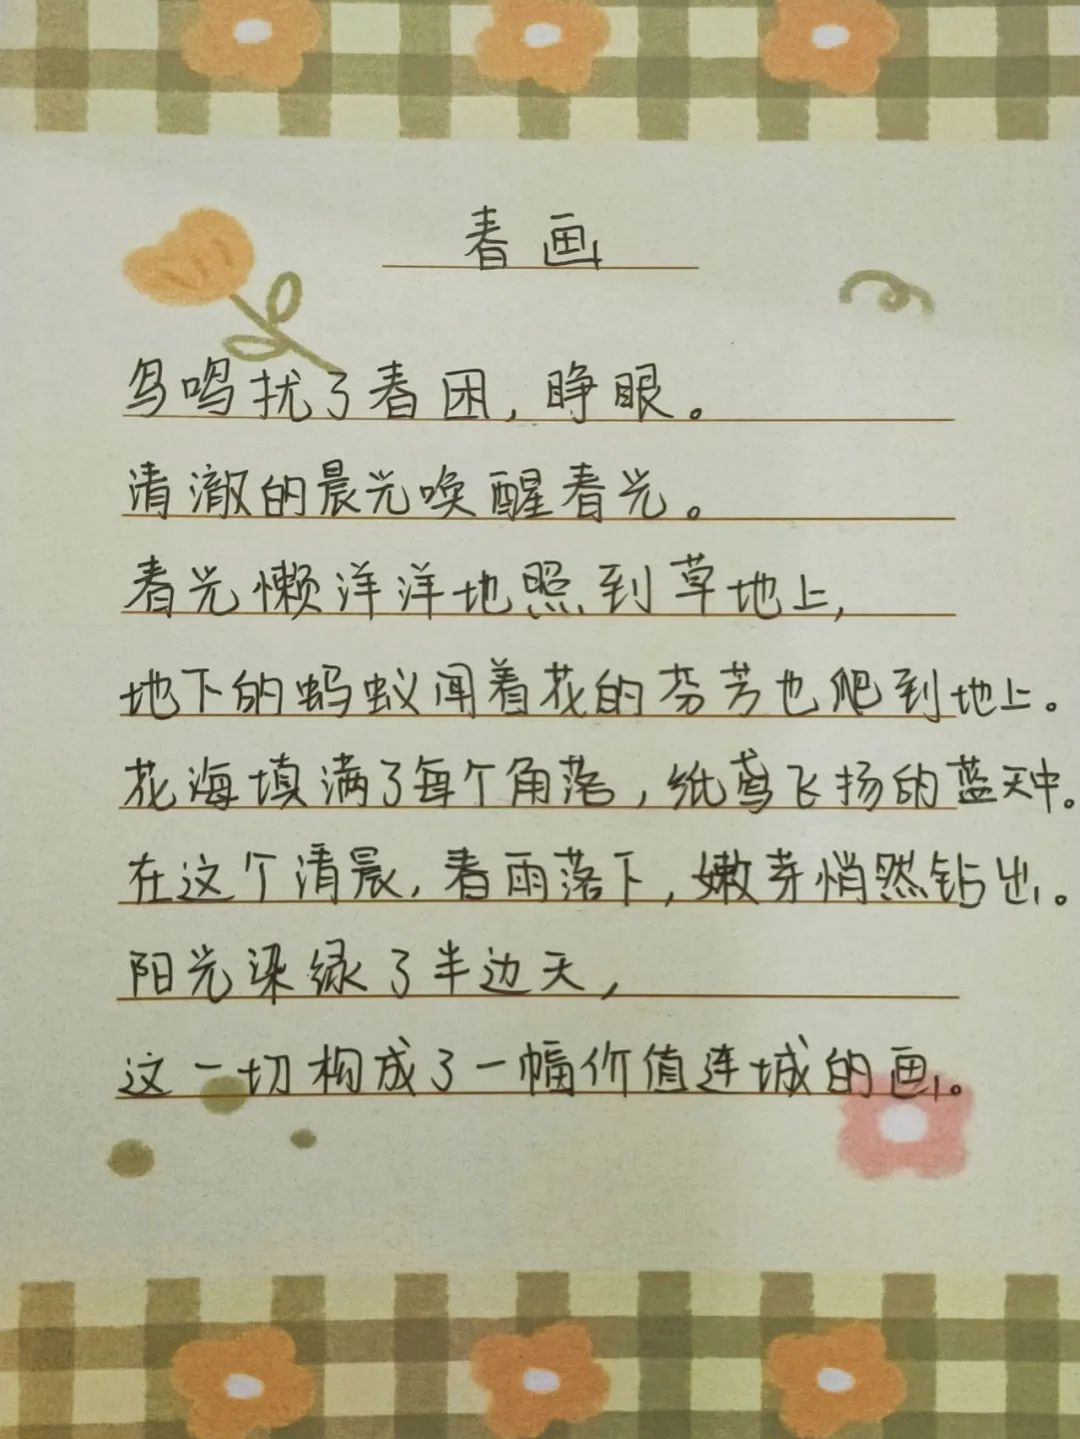 春画
鸟鸣扰了春困，睁眼。
清澈的晨光唤醒春光。
春光懒洋洋地照到草地上，
地下的蚂蚁闻着花的芬芳也爬到地上。
花海填满了每个角落，纸鸢飞扬的蓝天中。
在这个清晨，春雨落下，嫩芽悄然钻出。
阳光染绿了半边天，
这一切构成了一幅价值连城的画。